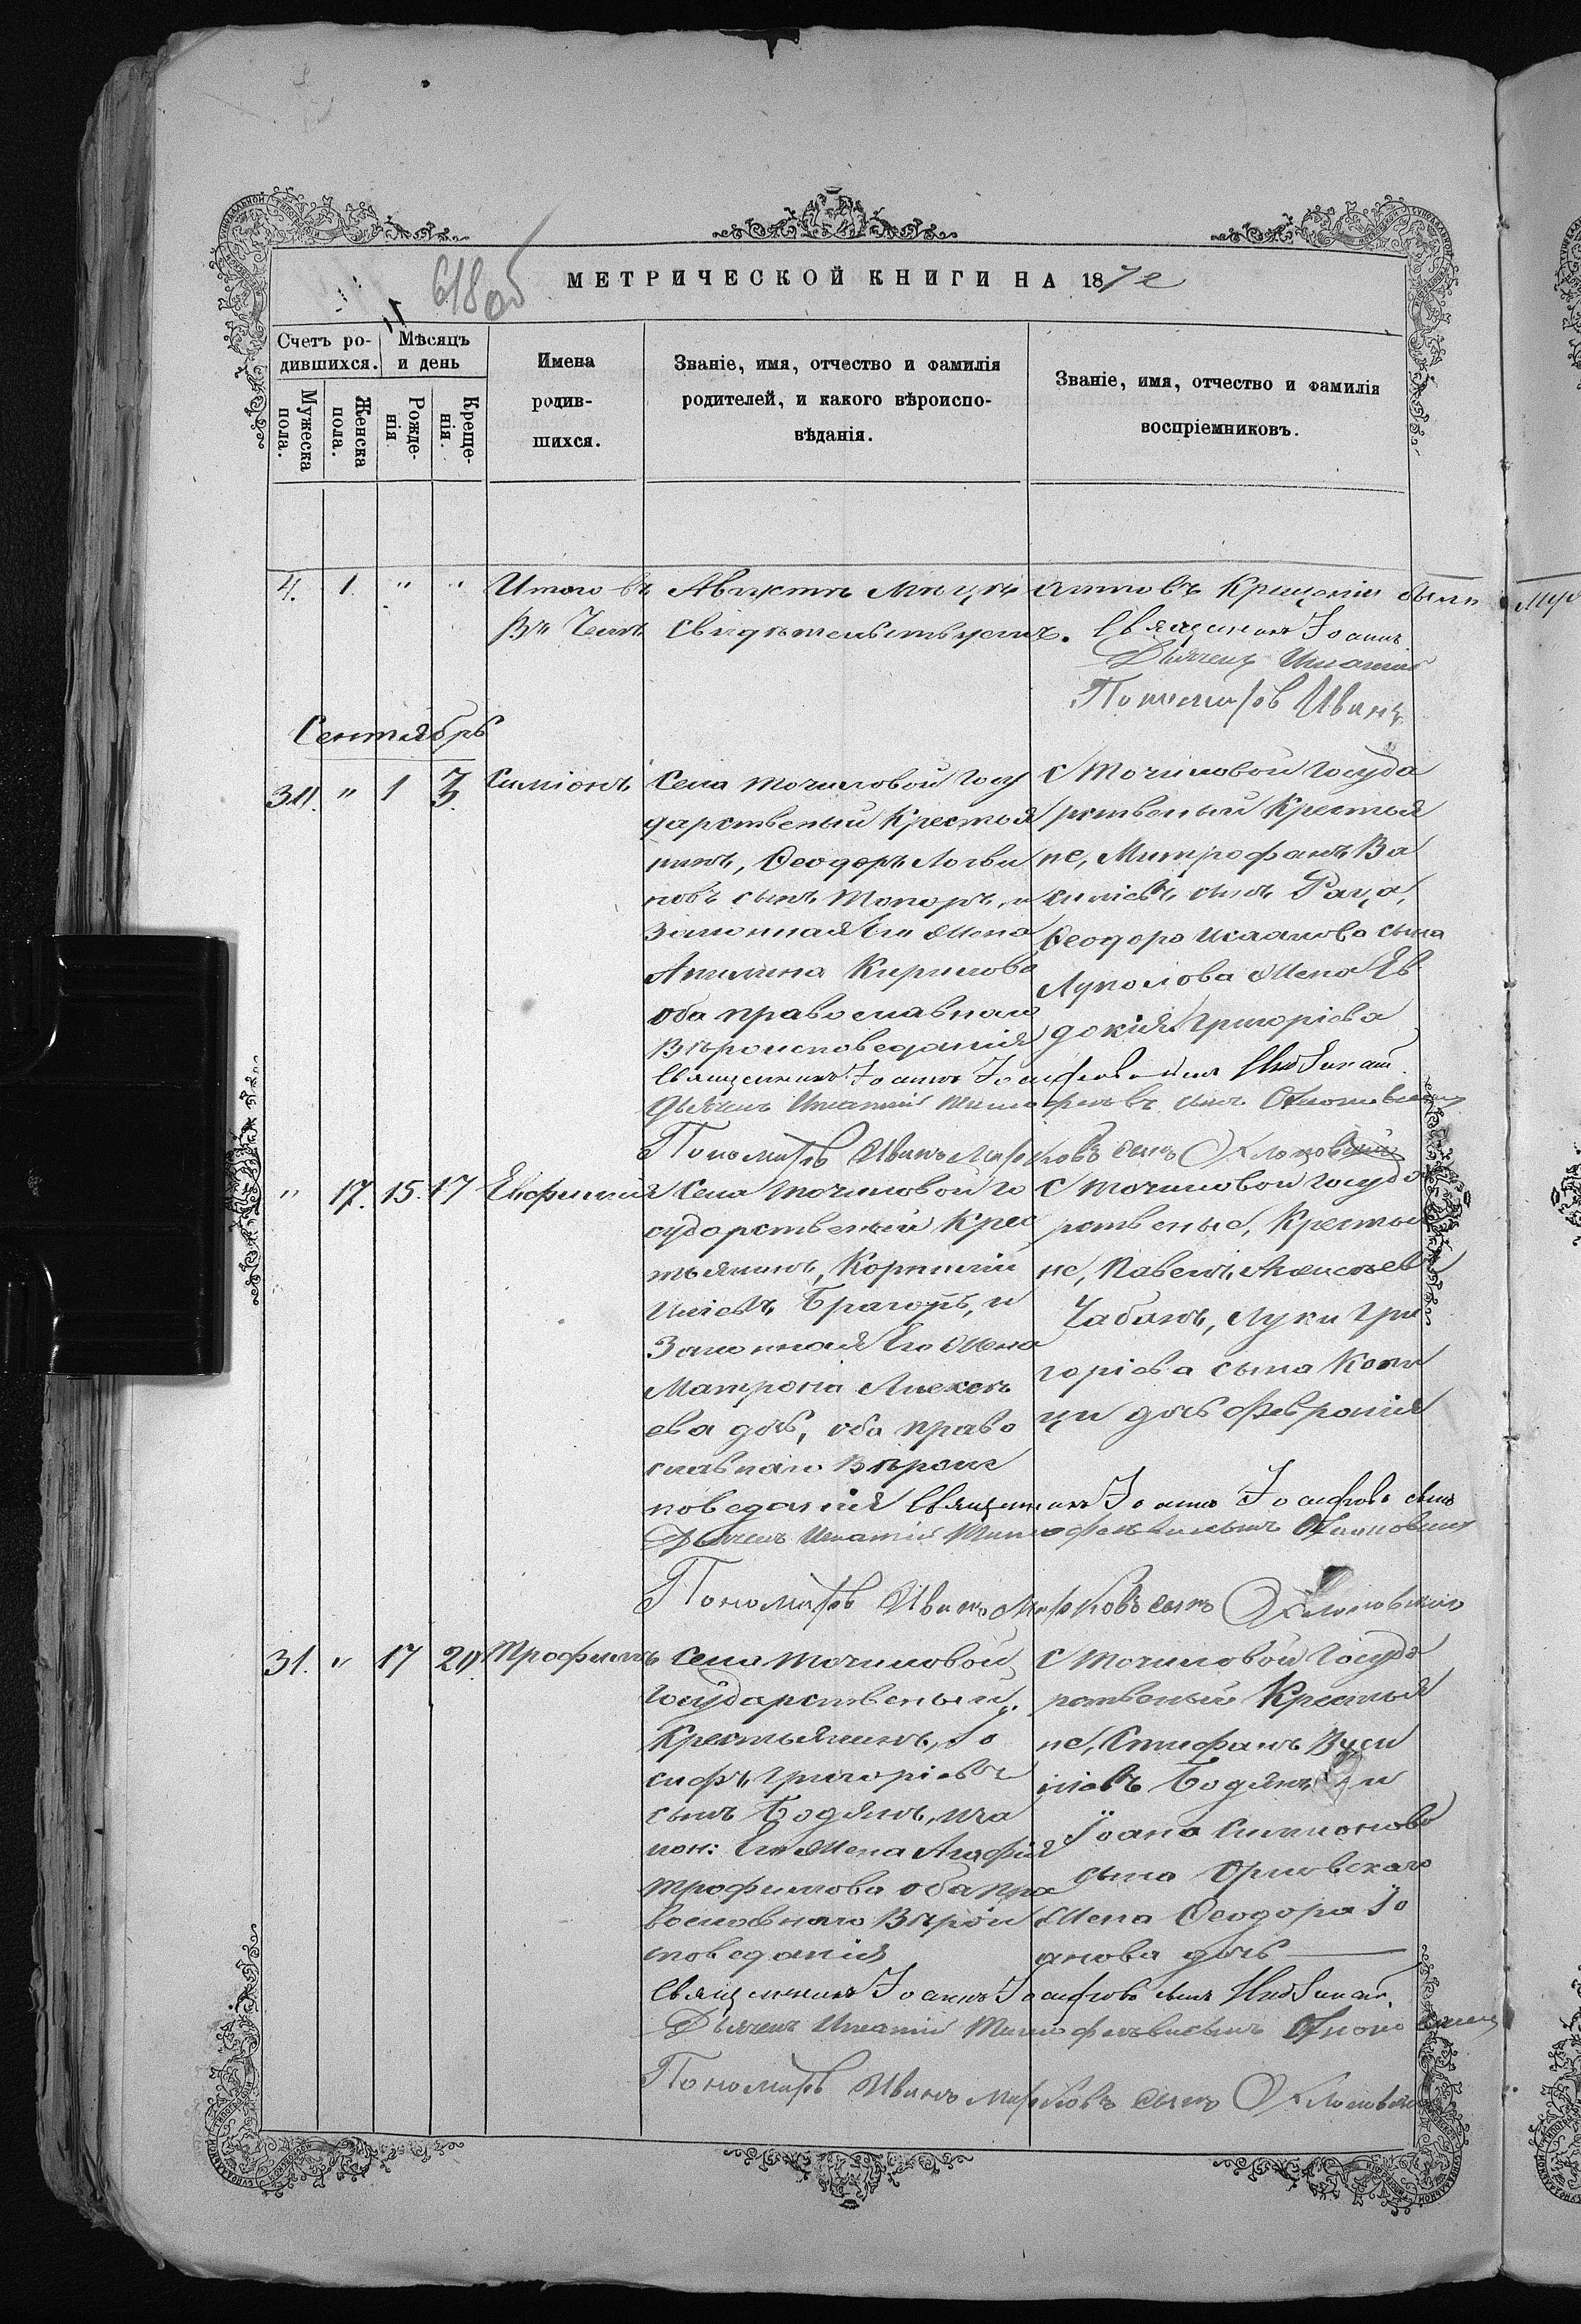 618 об
МЕТРИЧЕСКОЙ КНИГИ НА 1872
Счетъ родившихся.
Мѣсяцъ и день
Мужеска пола.
Женска пола.
Рожденія
Крещенія.
Имена родившихся.
Званіе, имя, отчество и фамилія родителей, и какого вѣроисповѣданія.
Званіе, имя, отчество и фамилія воспріемниковъ.
4. 1. " " Итого въ Августѣ Мѣсяцѣ актовъ Крещенія было
Въ Чемъ свидѣтельствуемъ. Священникъ Іоаннъ
Дьячекъ Игнатій
Пономарь Иванъ
Сентябрь
30. " 1 3 Симіонъ
Села Точиловой Госу
дарственый Крестья
нинъ, Ѳеодоръ Логви
новъ сынъ Топоръ, и
Законная Его жена
Акилина Кирилова
оба православнаго
Вѣроисповеданія
С Точиловой Госуда
рственый Крестья
не, Митрофанъ Ва
силіевъ сынъ Раца,
Ѳеодора Исакова сына
Луполова жена Ев
докія Григоріева
Священникъ Іоаннъ Іосифовъ сынъ
Дьячекъ Игнатій Тимофеевъ сынъ
Пономарь Иванъ Марковъ сынъ
" 17. 15. 17 Евфимія
Села Точиловой Го
сударственый Крес
тьянинъ, Корнилій
Иліевъ Брагоръ, и
Законная Его жена
Матрона Алексѣ
ева дочь, оба право
славнаго Вѣроис
поведанія
С Точиловой Государ
рственые, Крестья
не, Павелъ Алексѣевъ
Чабанъ, Луки Гри
горіева сына Копы
ци дочь Февронія
Священникъ Іоаннъ Іосифовъ сынъ
Дьячекъ Игнатій Тимофеевъ сынъ
Пономарь Иванъ Марковъ сынъ
31. " 17 20 Трофимъ
Села Точиловой
Государственый
Крестьянинъ, Іо
сифъ Григоріевъ
сынъ Бодянъ, и за
кон: Его жена Агафія
Трофимова оба пра
вославнаго Вѣрои
споведанія
С Точиловой Госуда
рственые Крестья
не, Стифанъ Васи
ліевъ Бодянъ и
Іоана Симионова
сына Орловскаго
жена Ѳеодора Іо
анова дочь
Священникъ Іоаннъ Іосифовъ сынъ
Дьячекъ Игнатій Тимофеевъ сынъ
Пономарь Иванъ Марковъ сынъ